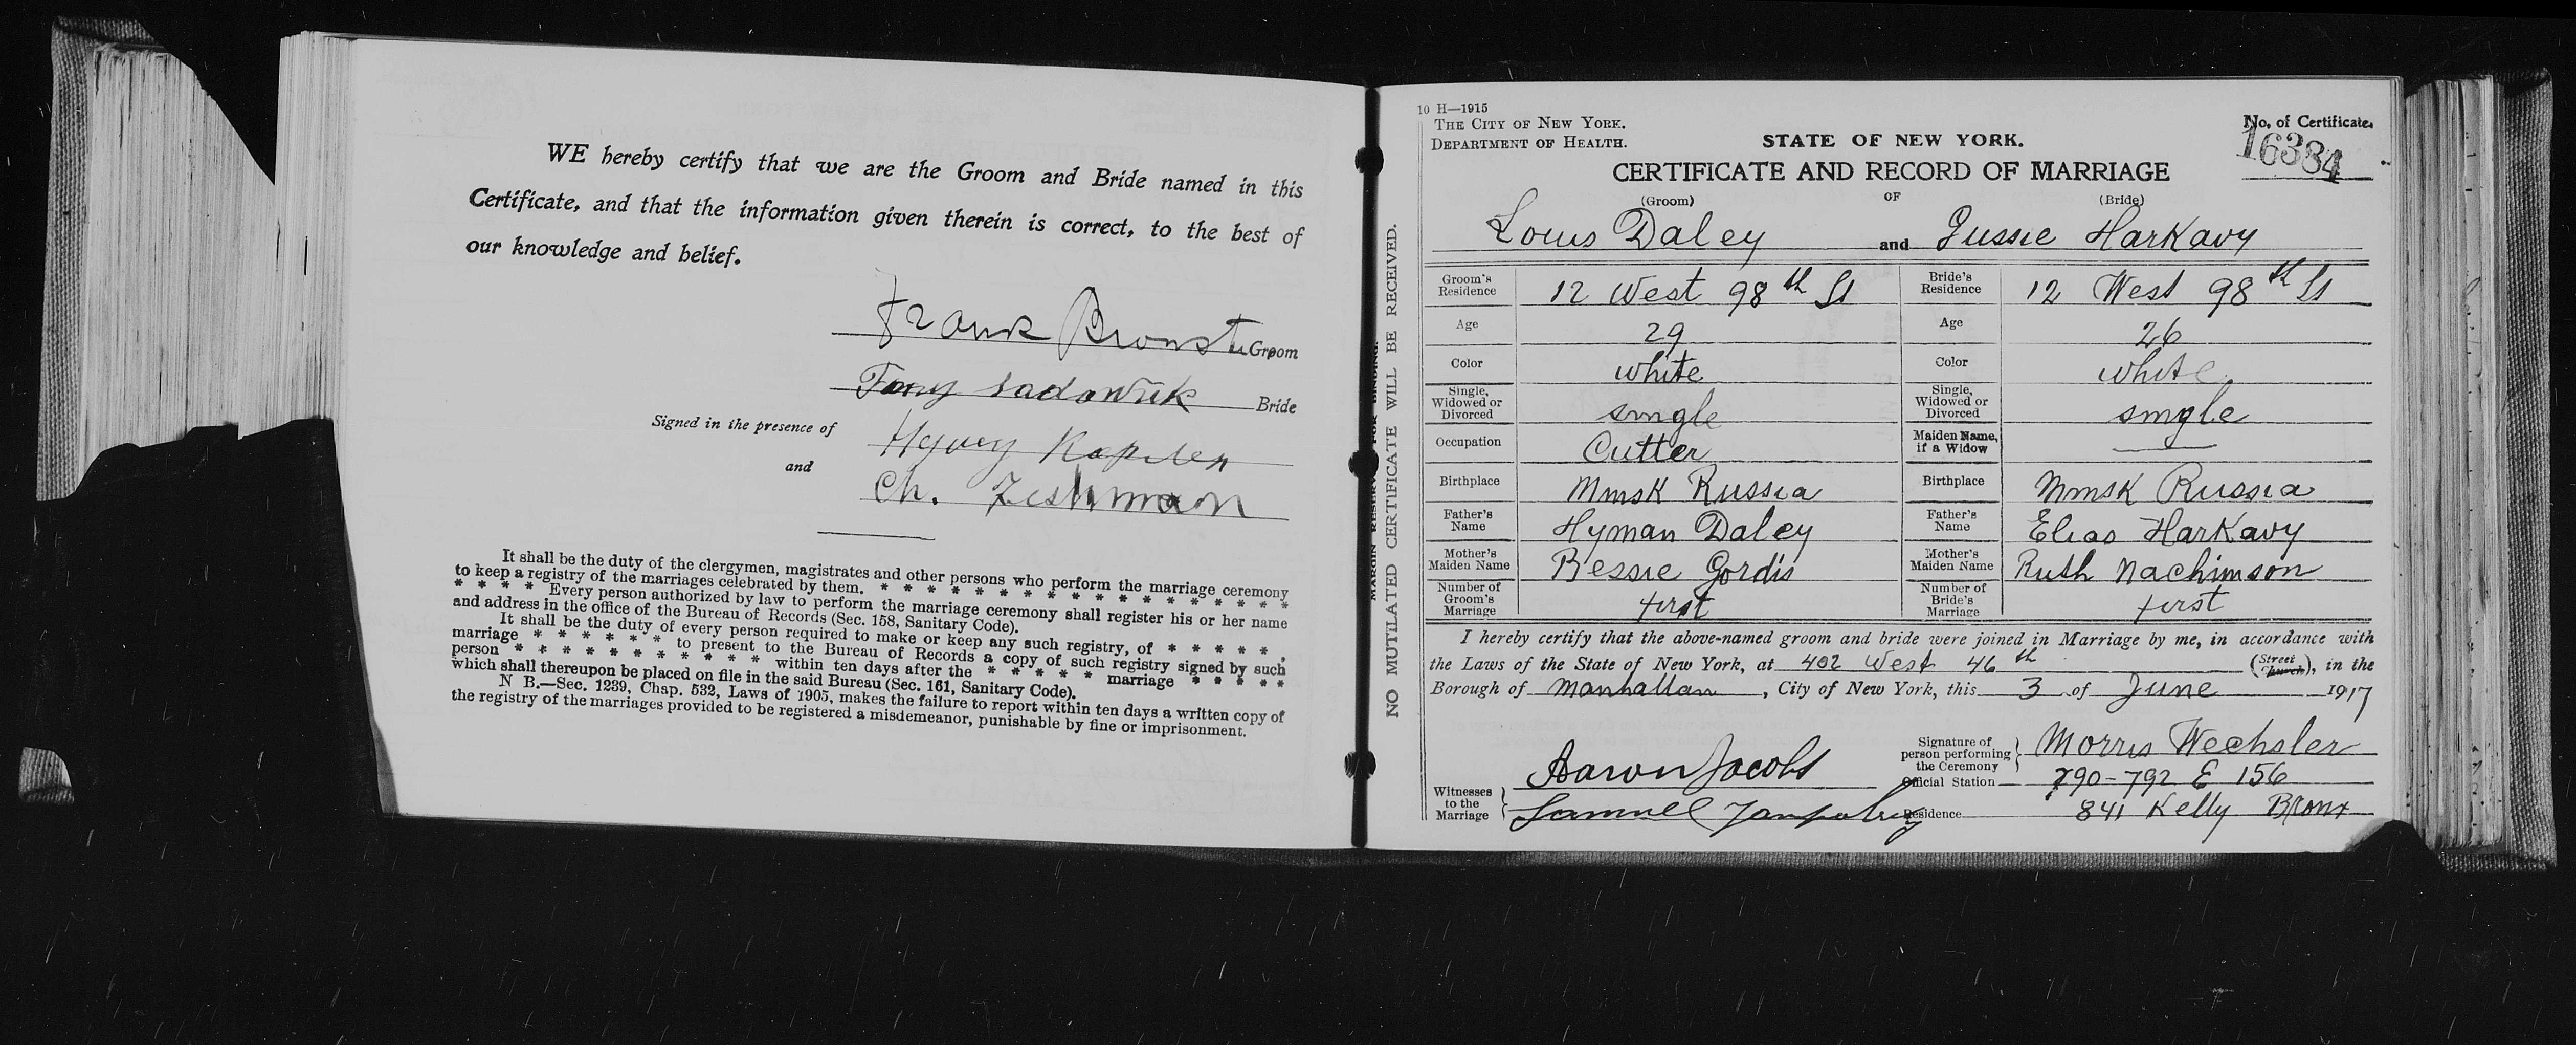 WE hereby certify that we are the Groom and Bride named in this
Certificate, and that the information given therein is correct, to the best of
our knowledge and belief.
Frank Groom
Bride
Signed in the presence of
and
Ch.
It shall be the duty of the clergymen, magistrates and other persons who perform the marriage ceremony
to keep a registry of the marriages celebrated by them. * * * * * * * * * * * * * * * * *
* * * * Every person authorized by law to perform the marriage ceremony shall register his or her name
and address in the office of the Bureau of Records (Sec. 158, Sanitary Code).
It shall be the duty of every person required to make or keep any such registry, of * * * * * ,
marriage * * * * * * to present to the Bureau of Records a copy of such registry signed by such
person * * * * * * * * * * * within ten days after the * * * * * marriage * * * * *
which shall thereupon be placed on file in the said Bureau (Sec. 161, Sanitary Code).
N B.—Sec. 1239, Chap. 532, Laws of 1905, makes the failure to report within ten days a written copy of
the registry of the marriages provided to be registered a misdemeanor, punishable by fine or imprisonment.
MARGIN RESERVED FOR BINDING.
NO MUTILATED CERTIFICATE WILL BE RECEIVED.
10 H—1915
THE CITY OF NEW YORK.
DEPARTMENT OF HEALTH.
STATE OF NEW YORK.
CERTIFICATE AND RECORD OF MARRIAGE
No. of Certificate.
16384
(Groom) OF (Bride)
Louis Daley and Gussie Harkavy
Groom's Residence 12 West 98th St Bride's Residence 12 West 98th St
Age 29 Age 26
Color white Color white
Single, Widowed or Divorced single Single, Widowed or Divorced single
Occupation Cutter Maiden Name, if a Widow —
Birthplace Minsk Russia Birthplace Minsk Russia
Father's Name Hyman Daley Father's Name Elias Harkavy
Mother's Maiden Name Bessie Gordis Mother's Maiden Name Ruth Nachimson
Number of Groom's Marriage first Number of Bride's Marriage first
I hereby certify that the above-named groom and bride were joined in Marriage by me, in accordance with
the Laws of the State of New York, at 402 West 46th (Street Church), in the
Borough of Manhattan, City of New York, this 3 of June 1917
Witnesses to the Marriage
Aaron Jacobs
Samuel
Signature of person performing the Ceremony Morris Wechsler
Official Station 790-792 E 156
Residence 841 Kelly Bronx